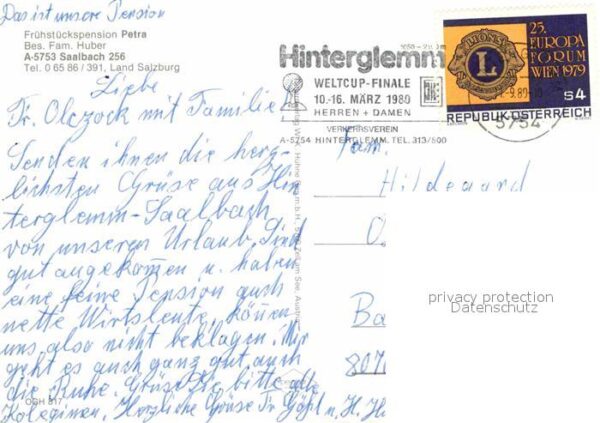 Das ist unsere Pension
Frühstückspension Petra
Bes. Fam. Huber
A-5753 Saalbach 256
Tel. 0 65 86 / 391, Land Salzburg
Liebe
Fr. Olczock mit Familie
Senden ihnen die herz-
lichsten Grüse aus Hin
terglemm-Saalbach
von unseren Urlaub. Sind
gut angekommen u. haben
eine feine Pension auch
nette Wirtsleute, können
uns also nicht beklagen. Mir
geht es auch ganz gut auch
die Ruhe. Grüse Sie bitte alle
Koleginen. Herzliche Grüse Fr u. H.
OGH 817
Hinterglemm
WELTCUP-FINALE
10.-16. MÄRZ 1980
HERREN + DAMEN
VERKEHRSVEREIN
A-5754 HINTERGLEMM, TEL. 313/500
25.
EUROPA
FORUM
WIEN 1979
LIONS
L
S4
REPUBLIK ÖSTERREICH
5754
Fam.
Hildegard
O
Ba
807
privacy protection
Datenschutz